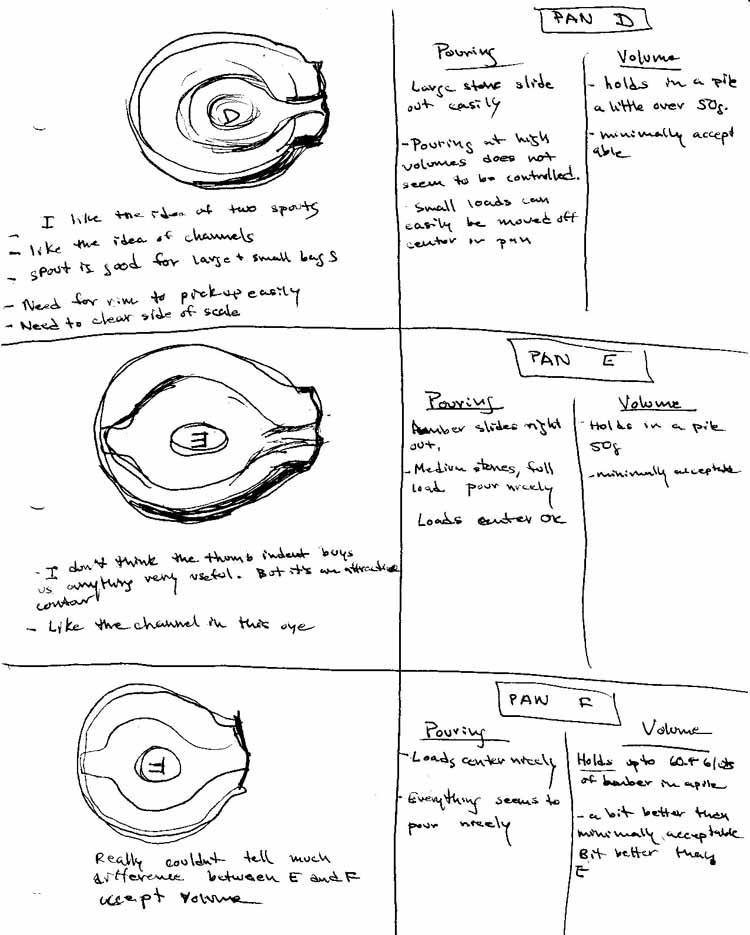 PAN D
D
Pouring
Large stone slide
out easily
-Pouring at high
volumes does not
seem to be controlled.
- Small loads can
easily be moved off
center in pan
Volume
- holds in a pile
a little over 50g.
- minimally accept
able
I like the idea of two spouts
- like the idea of channels
- spout is good for large + small bags
- Need for rim to pick up easily
- Need to clear side of scale
PAN E
E
Pouring
Amber slides right
out,
- Medium stones, full
load pour nicely
Loads center OK
Volume
- Holds in a pile
50g
- minimally acceptable
- I don't think the thumb indent buys
us anything very useful. But it's an attractive
contour
- Like the channel in this oye
PAN F
F
Pouring
- Loads center nicely
- Everything seems to
pour nicely
Volume
Holds up to
of bamber in a pile
- a bit better then
minimally acceptable
Bit better than
E
Really couldn't tell much
difference between E and F
accept volume